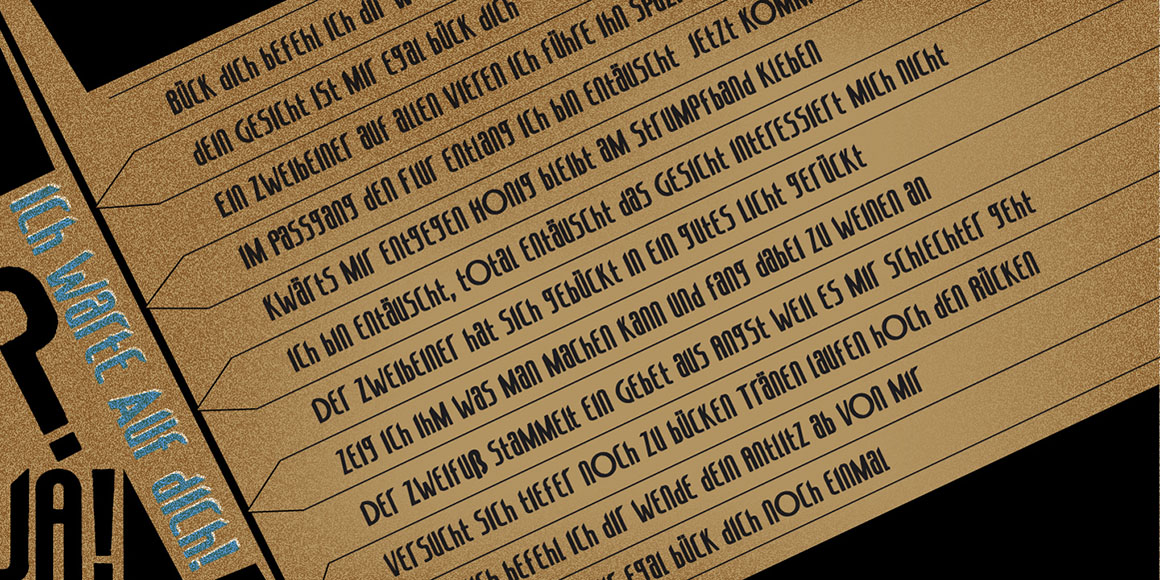 BÜCK dICh bEFEhl ICh dIr
dEIN GESICht ISt MIr Egal bÜCK dICh
EIN ZWEIbEINEr auf allEN VIErEN ICh fÜhrE Ihn
IM PaSSgang dEN Flur Entlang ICh bIN EntäUSCht JEtZt
KWärts MIr EntgEgEN HONIg blEIbt aM StruMPfband KlEbEN
ICh bIN EntäUSCht, tOtal EntäUSCht daS GESICht IntErESSIErt MICh nICht
DEr ZWEIbEINEr hat SICh gEbÜCKt IN EIN gutES lICht gErÜCKt
ZEIg ICh IhM waS MaN MaChEN KaNN UNd fang dabEI ZU WEINEN aN
DEr ZWEIfuß StaMMElt EIN GEbEt auS aNgSt WEIl ES MIr SChlEChtEr gEht
VErSUCht SICh tIEfEr NOCh ZU bÜCKEN TräNEN laufEN hOCh dEN RÜCKEN
bEfEhl ICh dIr WENdE dEIN aNtlItZ ab VON MIr
Egal bÜCK dICh NOCh EINMal
ICh WartE AUf dICh!
?
JA!